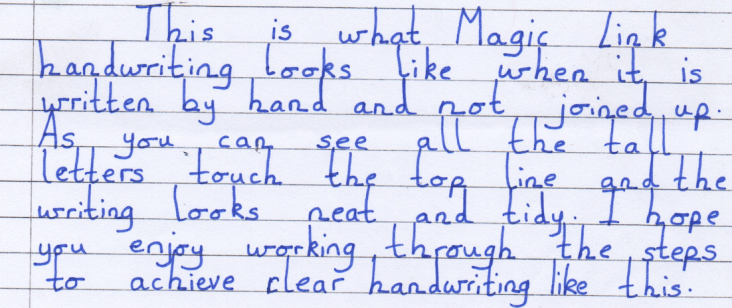 This is what Magic Link
handwriting looks like when it is
written by hand and not joined up.
As you can see all the tall
letters touch the top line and the
writing looks neat and tidy. I hope
you enjoy working through the steps
to achieve clear handwriting like this.